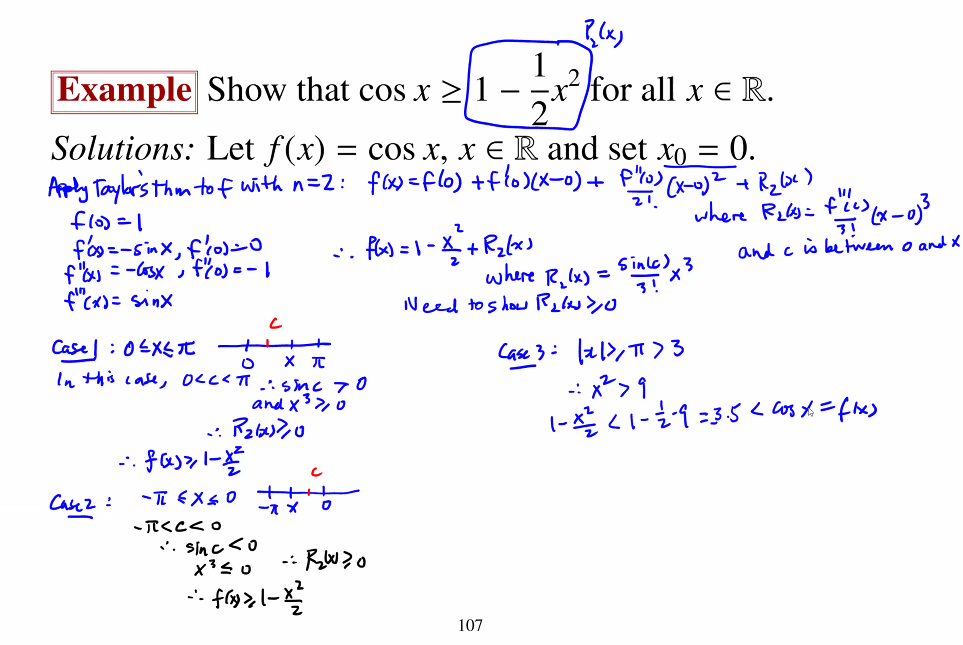 P₂(x)
Example Show that cos x ≥ 1 − 1/2 x² for all x ∈ ℝ.
Solutions: Let f(x) = cos x, x ∈ ℝ and set x₀ = 0.
Apply Taylor's thm to f with n=2: f(x)=f(0)+f'(0)(x-0)+ f''(0)/2! (x-0)² + R₂(x)
where R₂(x) = f'''(c)/3! (x-0)³
and c is between 0 and x
f(0)=1
f'(x)=-sinx, f'(0)=0
f''(x)=-cosx, f''(0)=-1
f'''(x)= sinx
∴ f(x)=1- x²/2 + R₂(x)
where R₂(x) = sin(c)/3! x³
Need to show R₂(x)≥0
Case 1: 0≤x≤π
c
0 x π
In this case, 0<c<π ∴ sin c > 0
and x³ ≥ 0
∴ R₂(x)≥0
∴ f(x)≥1- x²/2
Case 2: -π ≤ x ≤ 0
c
-π x 0
-π<c<0
∴ sin c < 0
x³ ≤ 0 ∴ R₂(x)≥0
∴ f(x)≥1- x²/2
Case 3: |x|≥π>3
∴ x²>9
1- x²/2 < 1- 1/2·9 =3.5 < cos x = f(x)
107